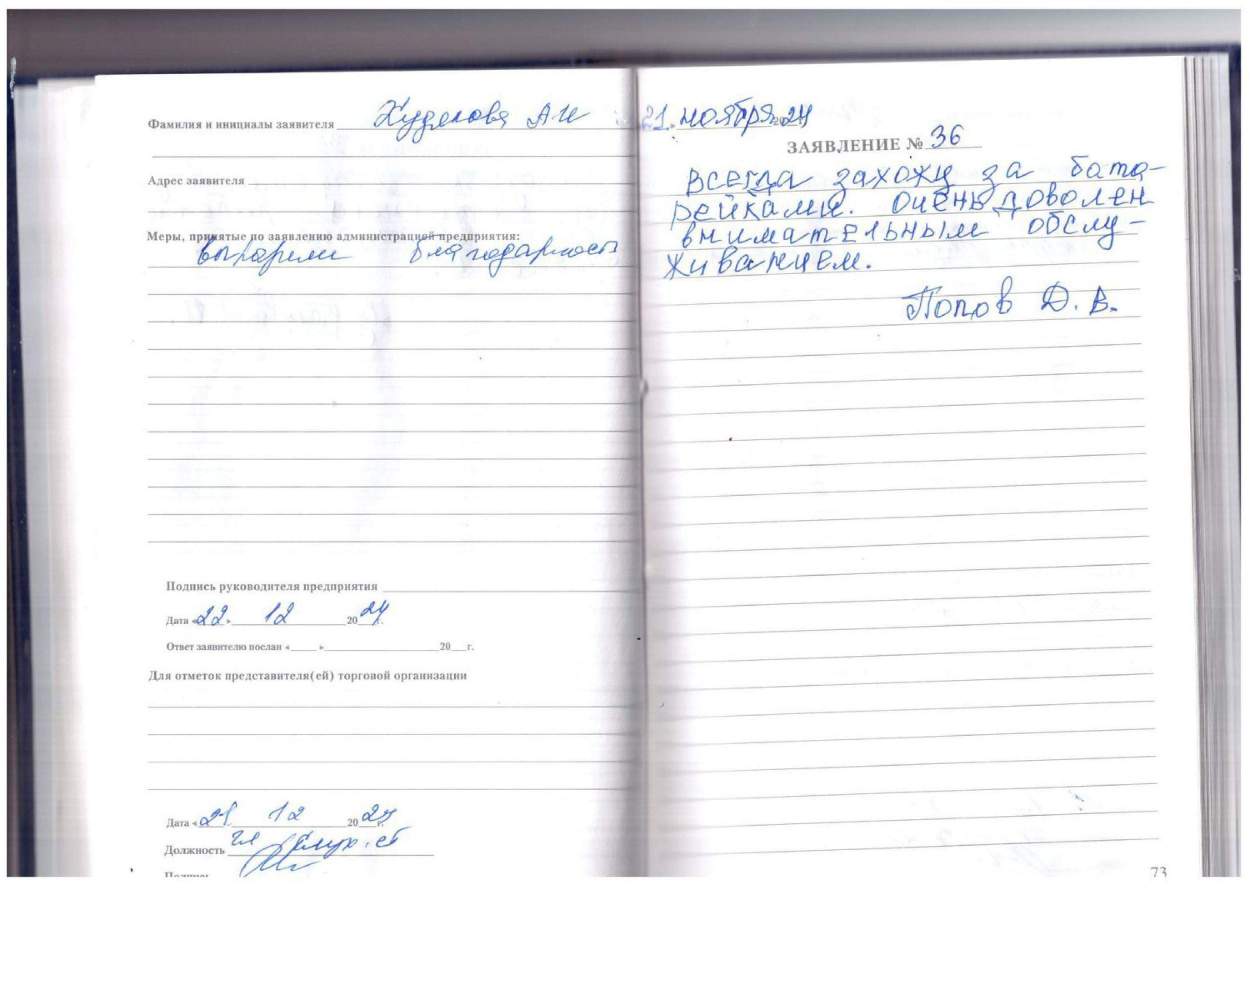 Фамилия и инициалы заявителя Худякова А И
Адрес заявителя
Меры, принятые по заявлению администрацией предприятия:
благодарность
Подпись руководителя предприятия
Дата «22» 12 2024 г.
Ответ заявителю послан « » 20 г.
Для отметок представителя(ей) торговой организации
Дата « 12 2024 г.
Должность
21. ноября 2024
ЗАЯВЛЕНИЕ № 36
Всегда захожу за бата-
рейками. очень доволен
внимательным обслу-
живанием.
Попов Д. В.
73